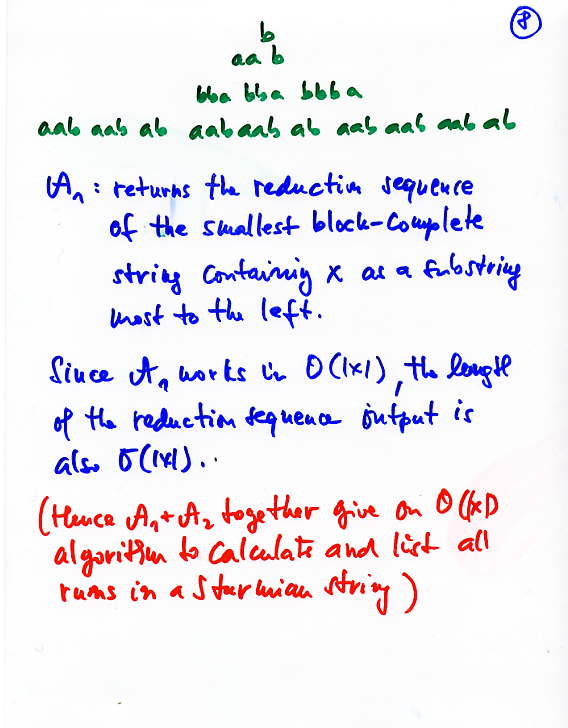 8
b
aa b
bba bba bbba
aab aab ab aab aab ab aab aab aab ab
A₁ : returns the reduction sequence
of the smallest block-complete
string containing x as a substring
most to the left.
Since A₁ works in O(|x|), the length
of the reduction sequence output is
also O(|x|).
(Hence A₁+A₂ together give an O(|x|)
algorithm to calculate and list all
runs in a Sturmian string)